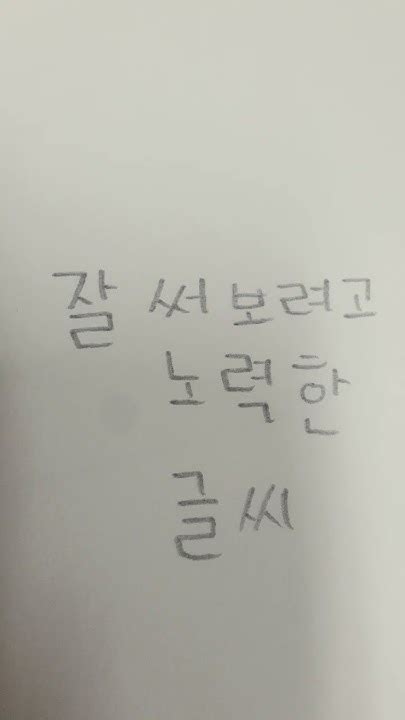 잘 써보려고
노력한
글씨